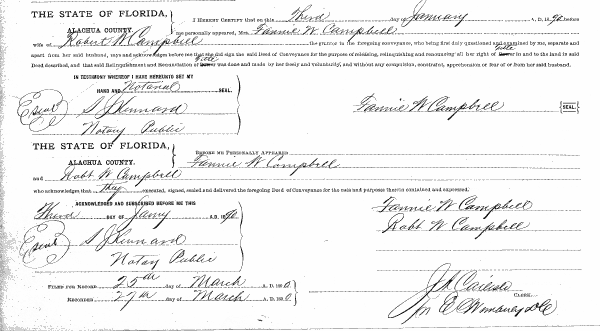 THE STATE OF FLORIDA,
ALACHUA COUNTY.
I HEREBY CERTIFY that on this Third day of January A. D. 1890 before
me personally appeared, Mrs. Fannie W Campbell
wife of Robert W Campbell the grantor in the foregoing conveyance, who being first duly questioned and examined by me, separate and
apart from her said husband, says and acknowledges before me that she did sign the said Deed of Conveyance for the purpose of releasing, relinquishing and renouncing all her right of Dower in and to the land in said
Title
Deed described, and that said Relinquishment and Renunciation of Dower was done and made by her freely and voluntarily, and without any compulsion, constraint, apprehension or fear of or from her said husband.
Title
IN TESTIMONY WHEREOF I HAVE HEREUNTO SET MY
HAND AND Notarial SEAL
Seal S J Kennard
Notary Public
Fannie W Campbell SEAL.
THE STATE OF FLORIDA,
ALACHUA COUNTY.
BEFORE ME PERSONALLY APPEARED
Fannie W Campbell
and Robt W Campbell
who acknowledges that they executed, signed, sealed and delivered the foregoing Deed of Conveyance for the uses and purposes therein contained and expressed.
ACKNOWLEDGED AND SUBSCRIBED BEFORE ME THIS
Third DAY OF Jany A. D. 1890
Seal S J Kennard
Notary Public
Fannie W Campbell
Robt W Campbell
FILED FOR RECORD 25th day of March A. D. 1890
RECORDED 27th day of March A. D. 1890
J A Carlisle
CLERK.